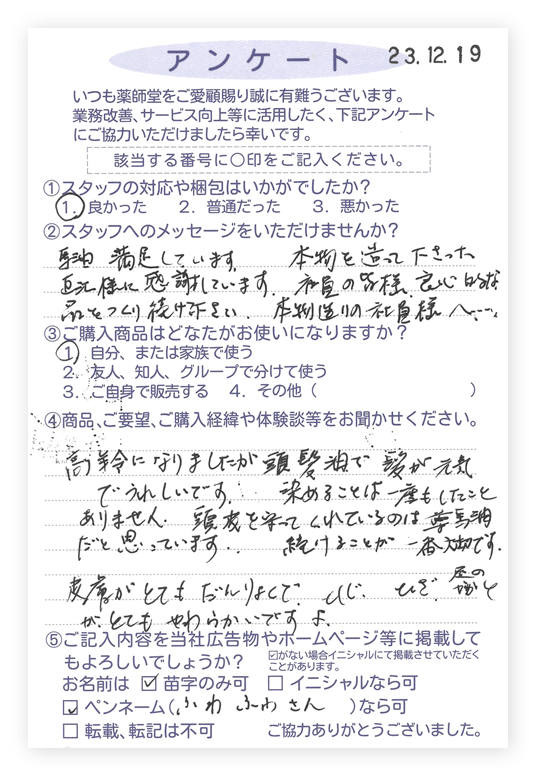 アンケート 23.12.19
いつも薬師堂をご愛顧賜り誠に有難うございます。
業務改善、サービス向上等に活用したく、下記アンケート
にご協力いただけましたら幸いです。
該当する番号に○印をご記入ください。
①スタッフの対応や梱包はいかがでしたか?
1. 良かった 2. 普通だった 3. 悪かった
②スタッフへのメッセージをいただけませんか?
馬油 満足しています。 本物を造って下さった
直江様に感謝しています。社員の皆様、良心的な
品をつくり続け下さい。本物造りの社員様へ……
③ご購入商品はどなたがお使いになりますか?
1 自分、または家族で使う
2. 友人、知人、グループで分けて使う
3. ご自身で販売する 4. その他( )
④商品、ご要望、ご購入経緯や体験談等をお聞かせください。
高令になりましたが頭髪油で髪が元気
でうれしいです。 染めることは一度もしたこと
ありません。頭皮を守ってくれているのは薬馬油
だと思っています。 続けることが一番大切です。
皮膚がとてもだんりょくで、ひじ、ひざ、足の
がとてもやわらかいですよ。
⑤ご記入内容を当社広告物やホームページ等に掲載して
もよろしいでしょうか? ☑がない場合イニシャルにて掲載させていただく
ことがあります。
お名前は ☑ 苗字のみ可 □ イニシャルなら可
☑ ペンネーム(ふわふわさん )なら可
□ 転載、転記は不可 ご協力ありがとうございました。